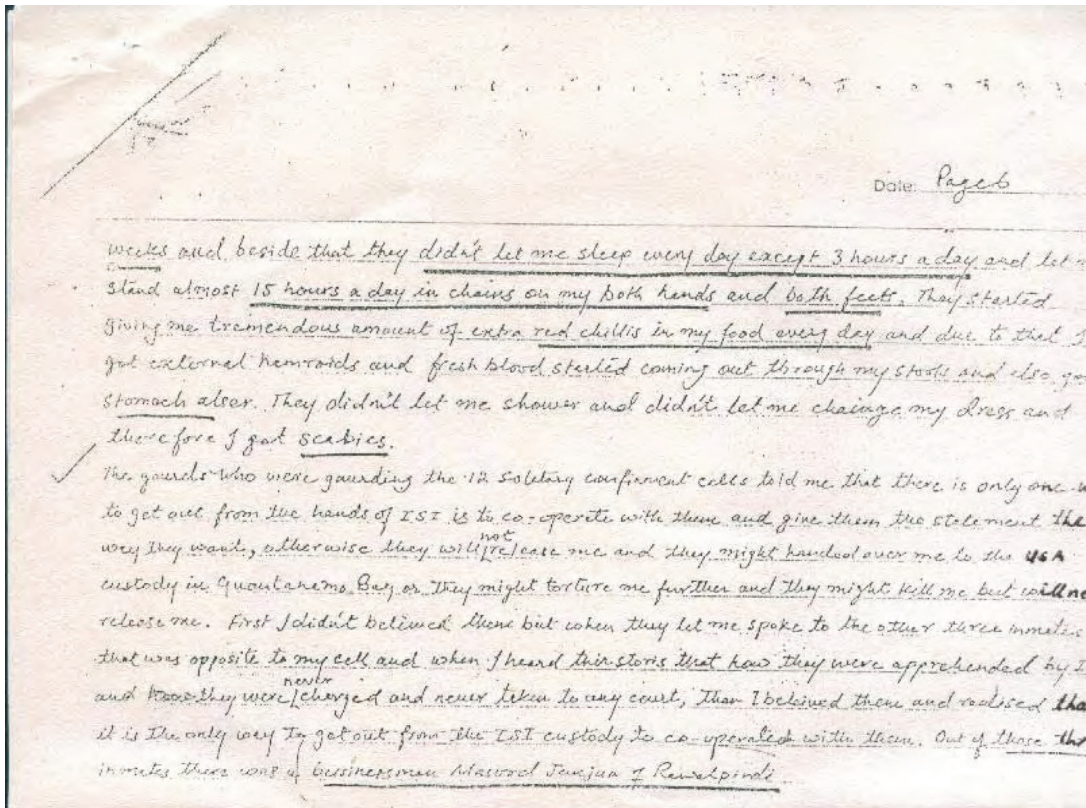 Date: Page 6
weeks and beside that they didn't let me sleep every day except 3 hours a day and let
stand almost 15 hours a day in chains on my both hands and both feets. They started
giving me tremendous amount of extra red chillis in my food every day and due to that I
got external hemroids and fresh blood started coming out through my stools and also
stomach alser. They didn't let me shower and didn't let me chainge my dress and
therefore I got scabies.
The gaurds who were gaurding the 12 solitary confinment cells told me that there is only one
to get out from the hands of ISI is to co-operate with them and give them the statement the
way they want, otherwise they will not release me and they might handed over me to the USA
custody in Guantanemo Bay or they might torture me further and they might kill me but will
release me. First I didn't beleived them but when they let me spoke to the other three inmates
that was opposite to my cell and when I heard their storis that how they were apprehended by
and they were never charged and never taken to any court, than I beleived them and realised
it is the only way to get out from the ISI custody to co-operated with them. Out of those
inmates there was a bussinessman Masood Janjua of Rawalpindi